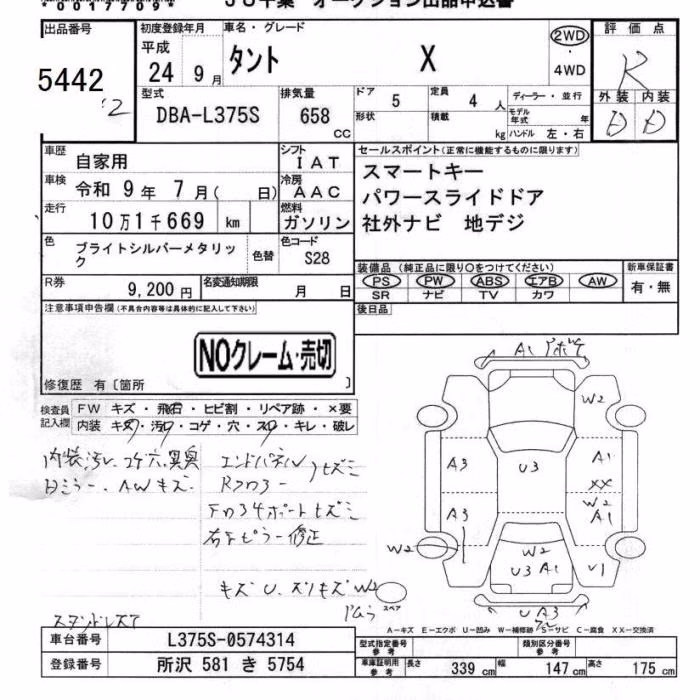 出品番号
5442
'2
初度登録年月
平成
24 9月
車名・グレード
タント X
2WD
4WD
評価点
R
外装 内装
D D
型式
DBA-L375S
排気量
658
CC
ドア 5
形状
定員 4 人
積載 kg
ディーラー・並行
モデル年式 年
ハンドル 左・右
車歴
自家用
車検
令和 9年 7月( 日)
走行
10万1千669 km
シフト
IAT
冷房
AAC
燃料
ガソリン
セールスポイント(正常に機能するものに限ります)
スマートキー
パワースライドドア
社外ナビ 地デジ
色
ブライトシルバーメタリック
色替
色コード
S28
装備品 (純正品に限り○をつけてください)
PS PW ABS エアB AW
SR ナビ TV カワ
新車保証書
有・無
R券
9,200 円
名変通知期限
月 日
後日品
注意事項申告欄(不具合内容等は具体的に記入して下さい)
NOクレーム・売切
修復歴 有〔箇所 〕
検査員記入欄
FW キズ・飛石・ヒビ割・リペア跡・×要
内装 キズ・汚れ・コゲ・穴・スレ・キレ・破レ
内装汚レ、コゲ穴、異臭
日ミラー、AWキズ
エンドパネル
Rフロアー
ヒズミ
右 ピラー修正
キズ U、ズリキズ W2
A1
W2
A3
U3
A1
XX
W2
A1
A3
W2
W2
U3 A1
U1
U A3
スペア
A－キズ E－エクボ U－凹み W－補修跡 S－サビ C－腐食 XX－交換済
車台番号
L375S-0574314
登録番号
所沢 581 き 5754
型式指定番号
参考
類別区分番号
参考
車庫証明用
参考
長さ 339 cm 幅 147 cm 高さ 175 cm